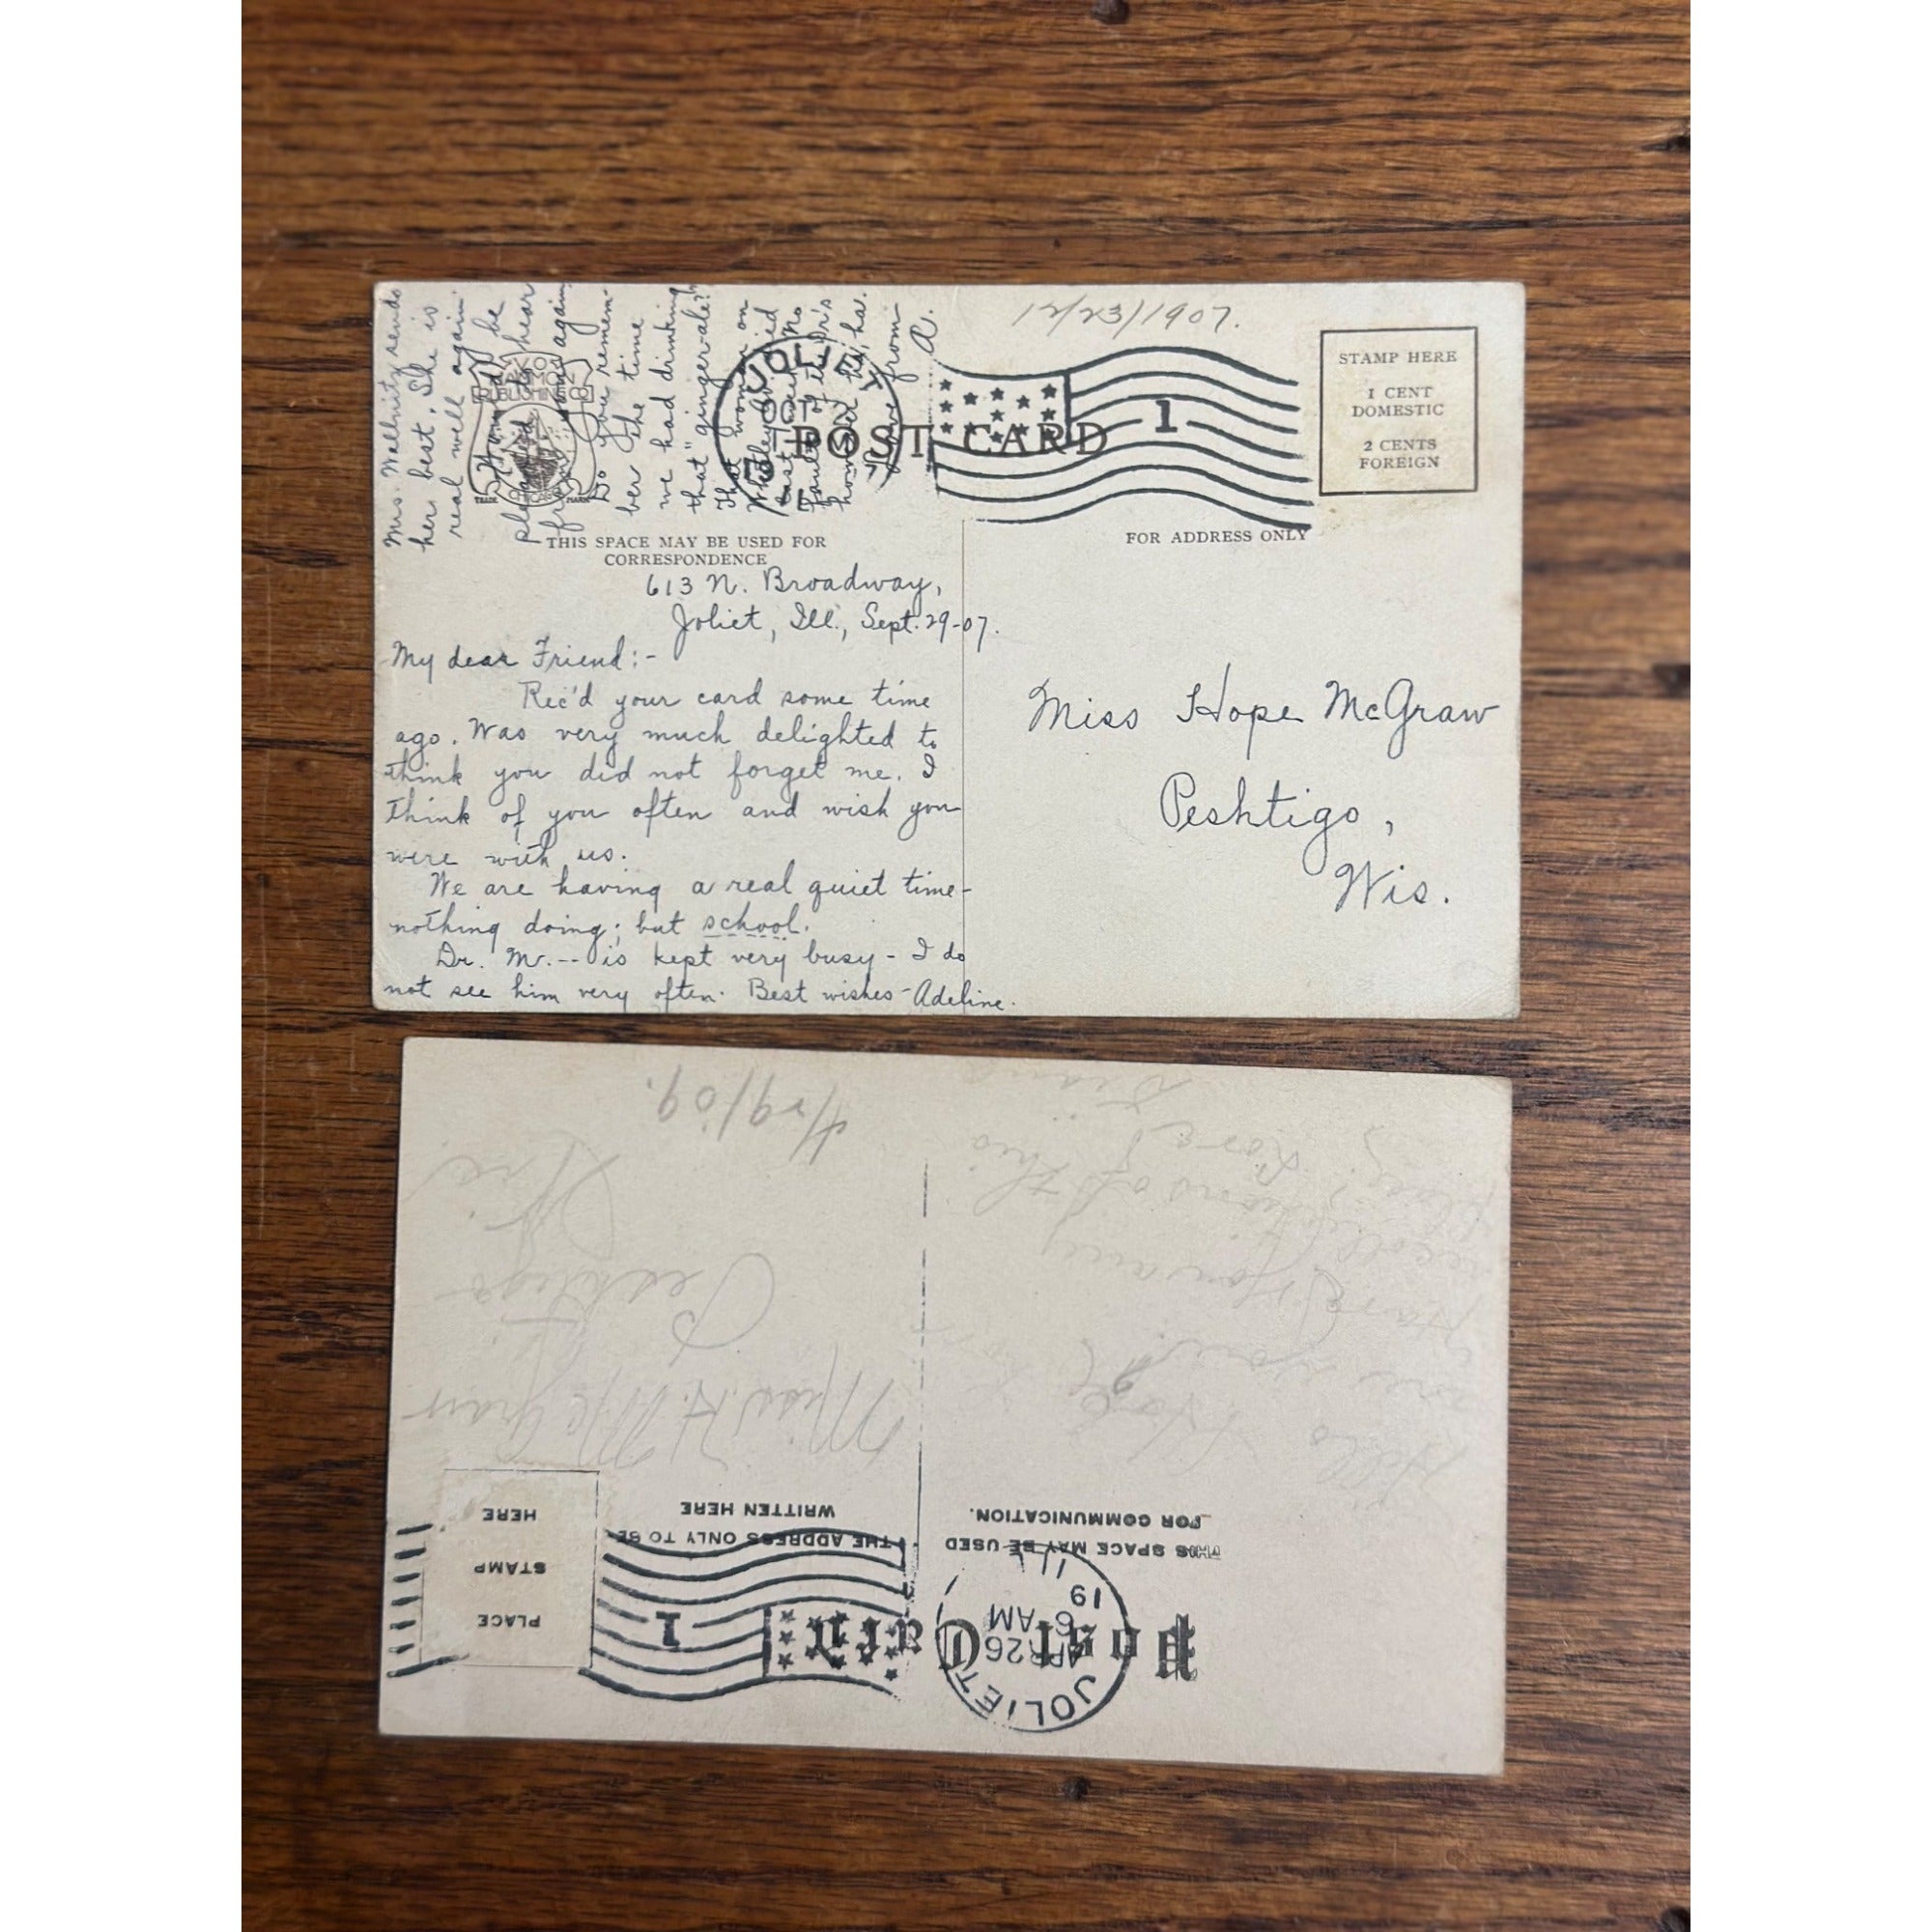 12/23/1907.
STAMP HERE
1 CENT
DOMESTIC
2 CENTS
FOREIGN
JOLIET
OCT
POST CARD
1
TRADE MARK
CHICAGO
THIS SPACE MAY BE USED FOR
CORRESPONDENCE
FOR ADDRESS ONLY
613 N. Broadway,
Joliet, Ill., Sept. 29-07.
My dear Friend:-
Rec'd your card some time
ago. Was very much delighted to
think you did not forget me. I
think of you often and wish you
were with us.
We are having a real quiet time-
nothing doing; but school.
Dr. M.-- is kept very busy - I do
not see him very often. Best wishes - Adeline.
Mrs. Wallnitz sends
her best. She is
real well again
would be
pleased to hear
from you again
Do you remem-
ber the time
we had drinking
that "ginger-ale?"
That woman on
died
last week No
fault of the Dr's
ha, ha.
Love from
A.
Miss Hope McGraw
Peshtigo,
Wis.
Post Card
JOLIET
APR 26
6 AM
19
ILL
1
PLACE
STAMP
HERE
THIS SPACE MAY BE USED
FOR COMMUNICATION.
THE ADDRESS ONLY TO BE
WRITTEN HERE
Hello Hope
Have you any
recollections of this
place?
Love
Miss H. McGraw
Peshtigo
Wis.
4/29/09.